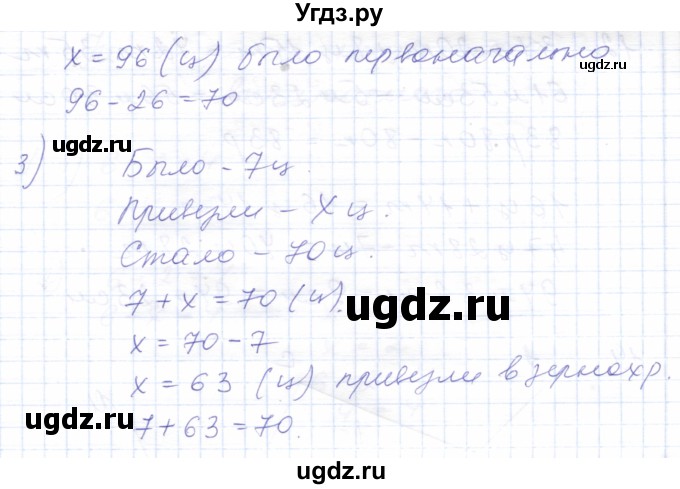 Угдз.ру
x = 96 (ц) было первоначально
ugdz.ru
96 - 26 = 70
ugdz.ru
3) Было - 7ц.
Привезли - X ц.
ugdz.ru
Стало - 70ц.
7 + x = 70 (ц).
ugdz.ru
x = 70 - 7
x = 63 (ц) привезли в зернохр.
ugdz.ru
7 + 63 = 70.
ugdz.ru